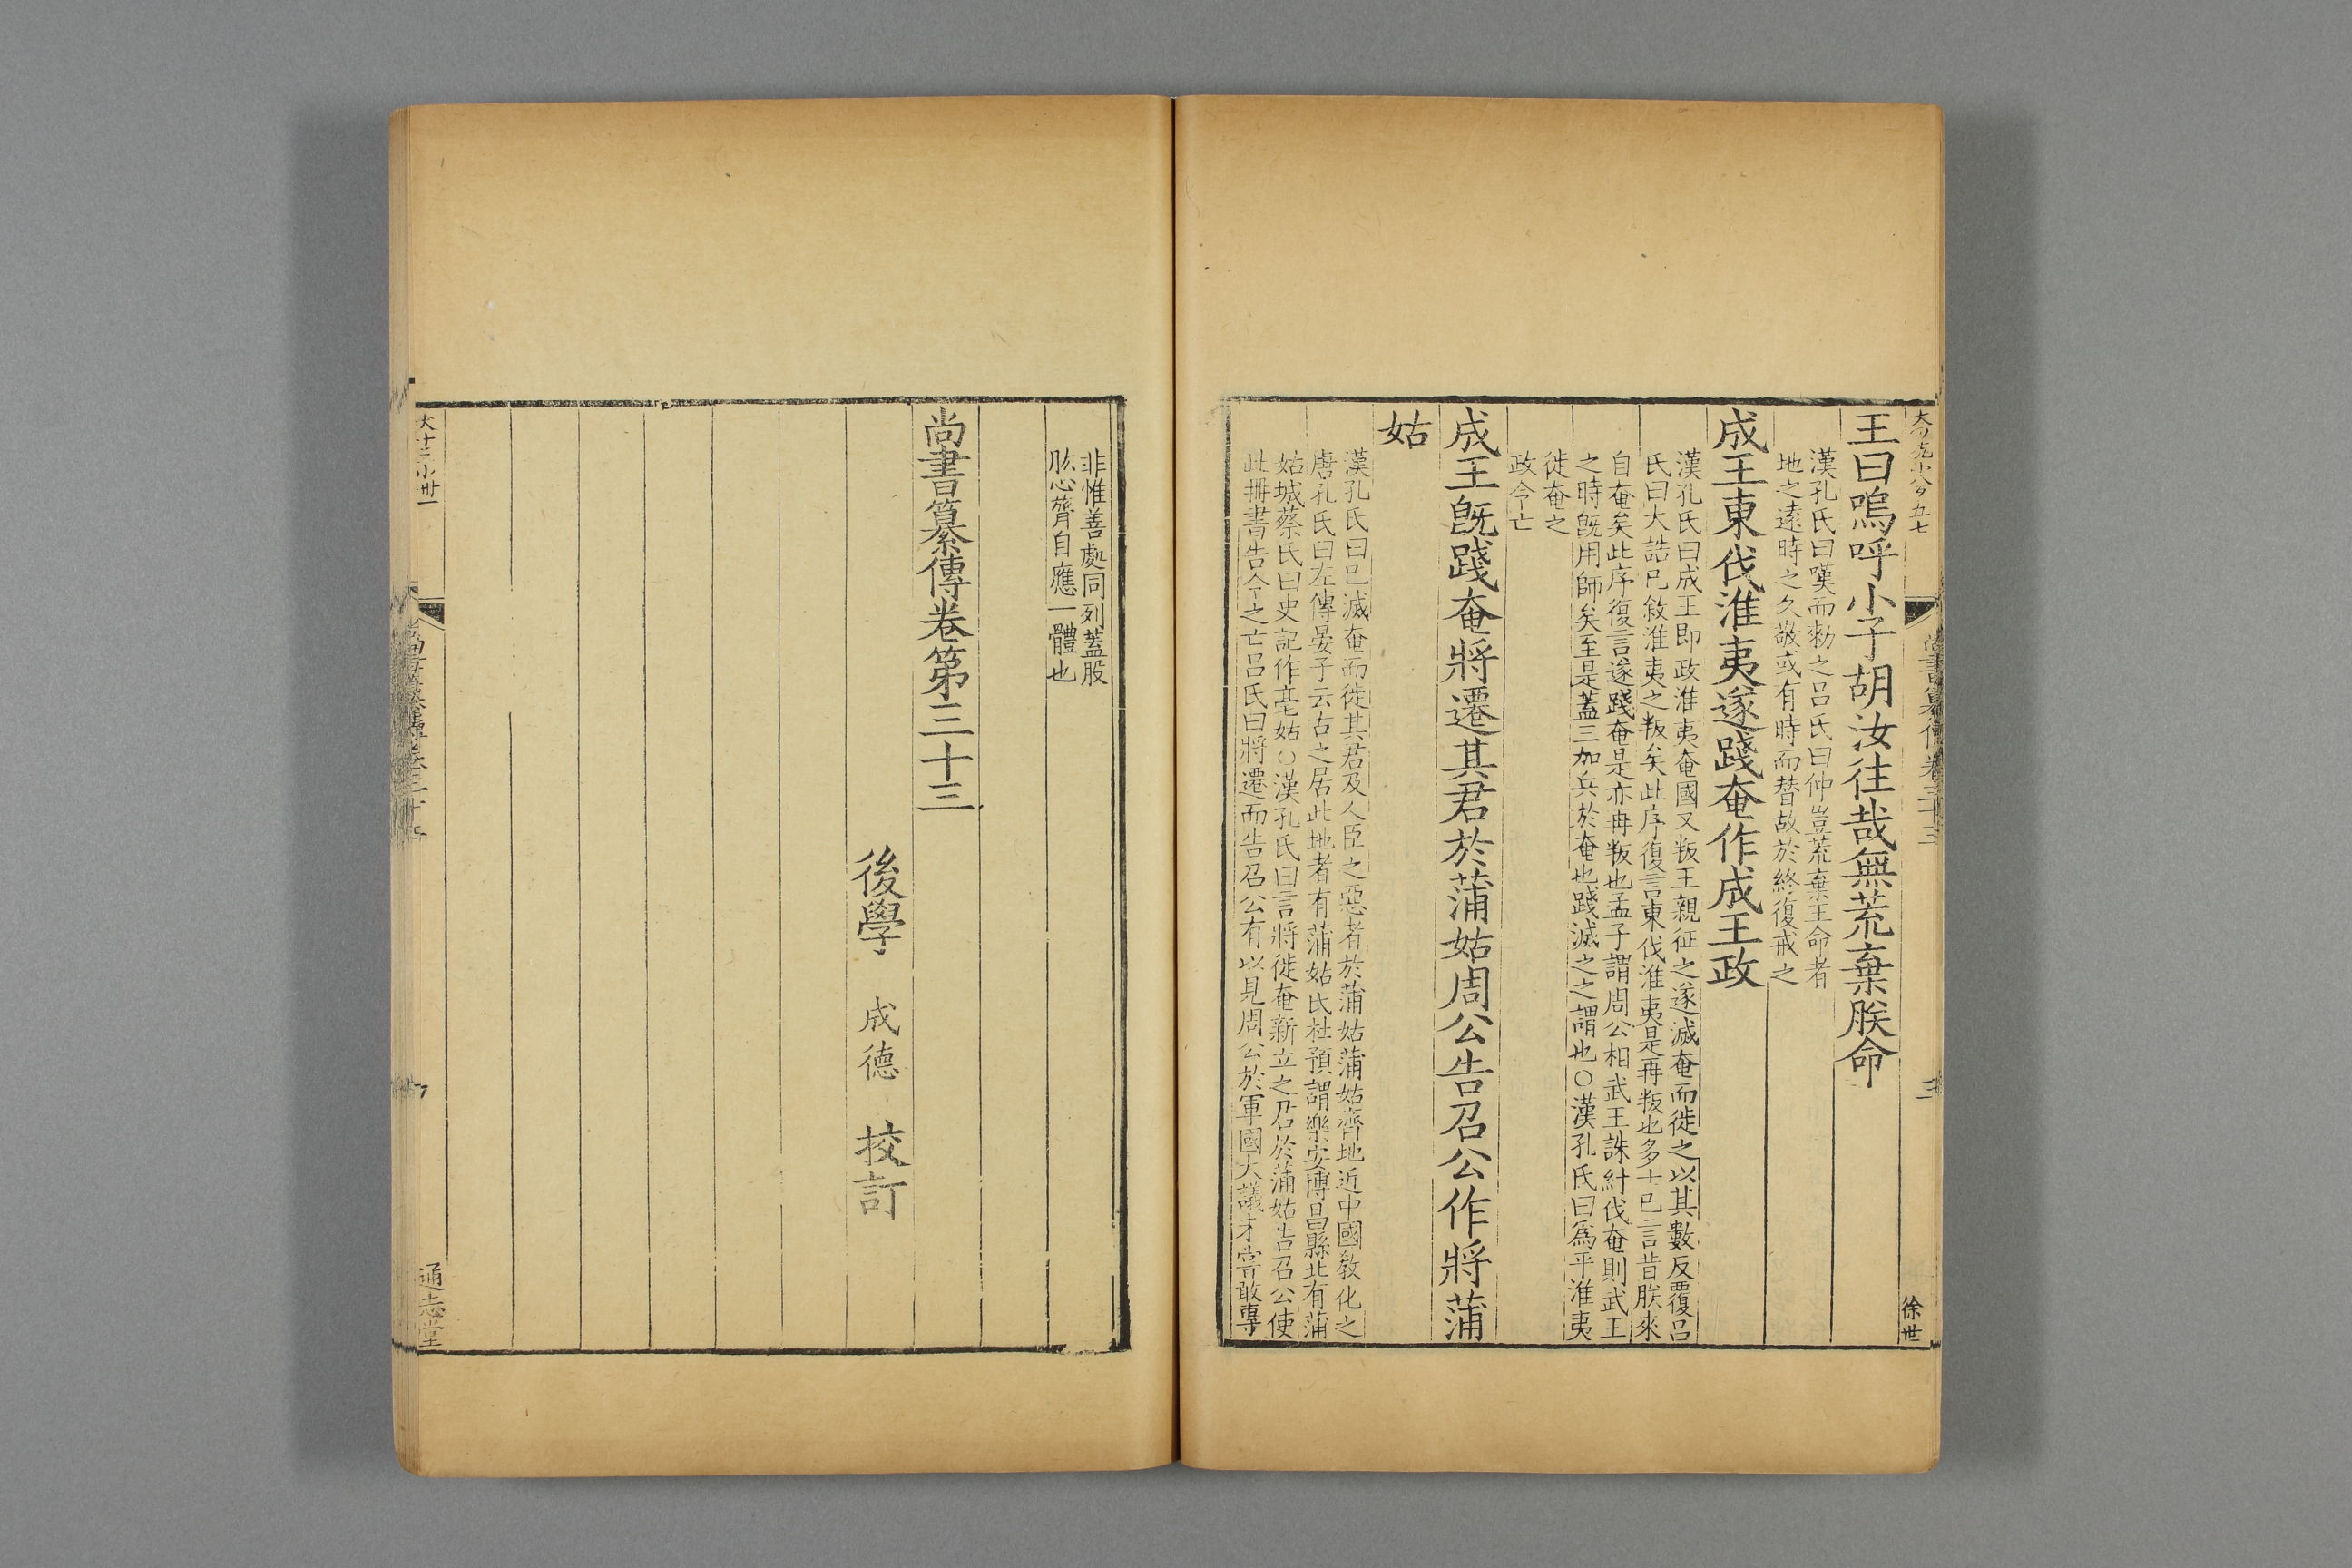 王曰嗚呼小子胡汝往哉無荒棄朕命
漢孔氏曰嘆而勑之吕氏曰仲豈荒棄王命者
地之遠時之久敬或有時而替故於終復戒之
成王東伐淮夷遂踐奄作成王政
漢孔氏曰成王即政淮夷奄國又叛王親征之遂滅奄而徙之以其數反覆吕
氏曰大誥已敘淮夷之叛矣此序復言東伐淮夷是再叛也多士已言昔朕來
自奄矣此序復言遂踐奄是亦再叛也孟子謂周公相武王誅紂伐奄則武王
之時旣用師矣至是蓋三加兵於奄也踐滅之之謂也○漢孔氏曰爲平淮夷
徙奄之
政令亡
成王旣踐奄將遷其君於蒲姑周公告召公作將蒲
姑
漢孔氏曰已滅奄而徙其君及人臣之惡者於蒲姑蒲姑齊地近中國敎化之
唐孔氏曰左傳晏子云古之居此地者有蒲姑氏杜預謂樂安博昌縣北有蒲
姑城蔡氏曰史記作亳姑○漢孔氏曰言將徙奄新立之君於蒲姑告召公使
此冊書告令之亡吕氏曰將遷而告召公有以見周公於軍國大議才嘗敢專
徐世
非惟善處同列蓋股
肱心膂自應一體也
尚書纂傳卷第三十三
後學 成德 挍訂
大十二小卅一
通志堂